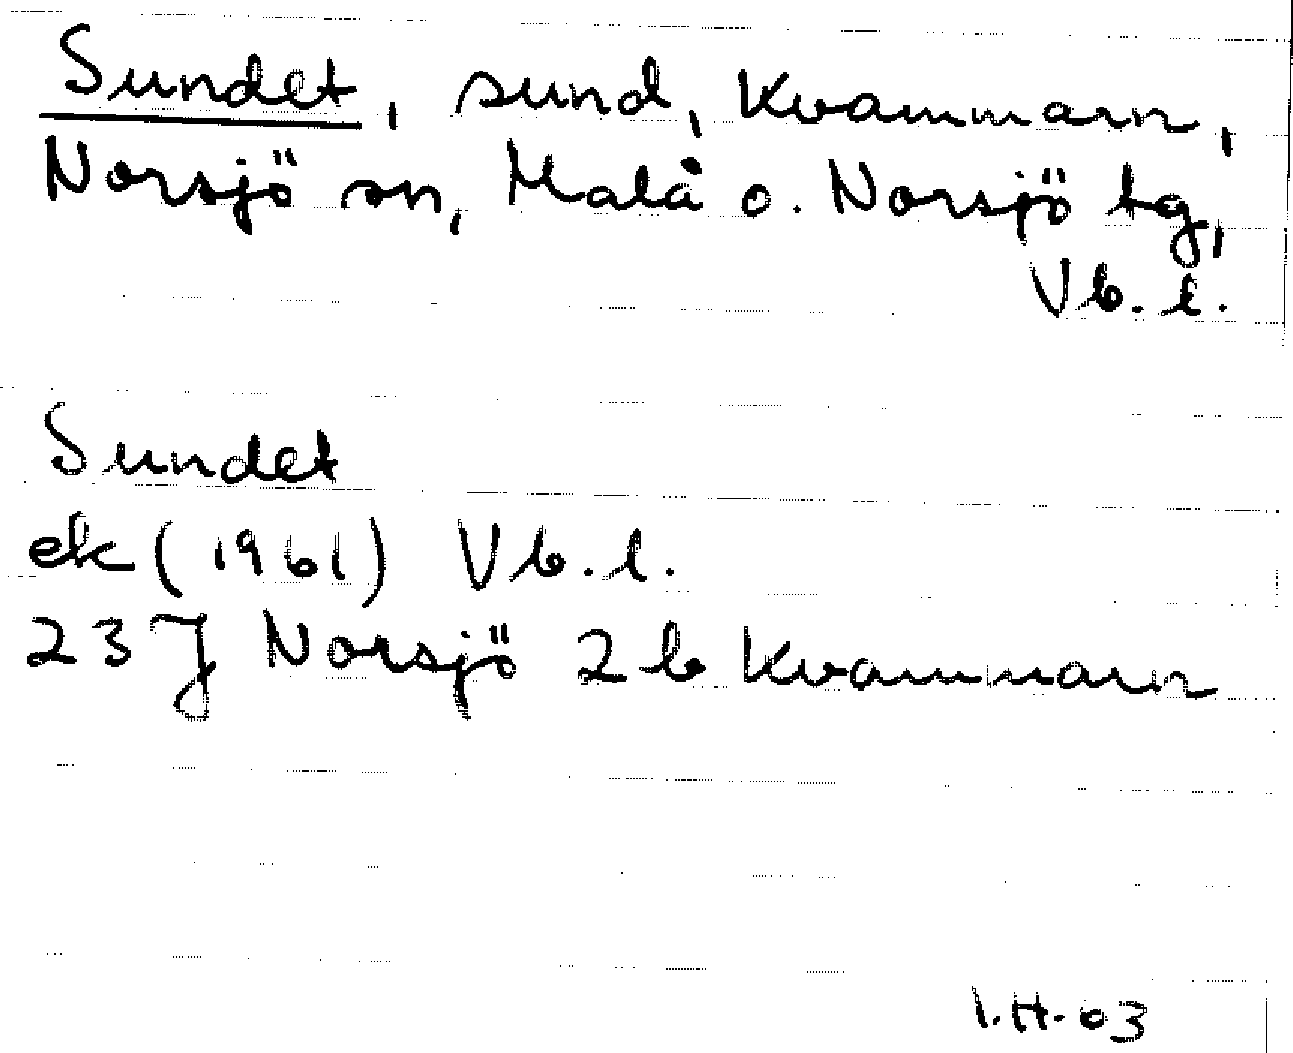 Sundet, sund, Kvammarn,
Norsjö sn, Malå o. Norsjö tg,
Vb. l.
Sundet
ek (1961) Vb. l.
23J Norsjö 2b Kvammarn
I.H. 03